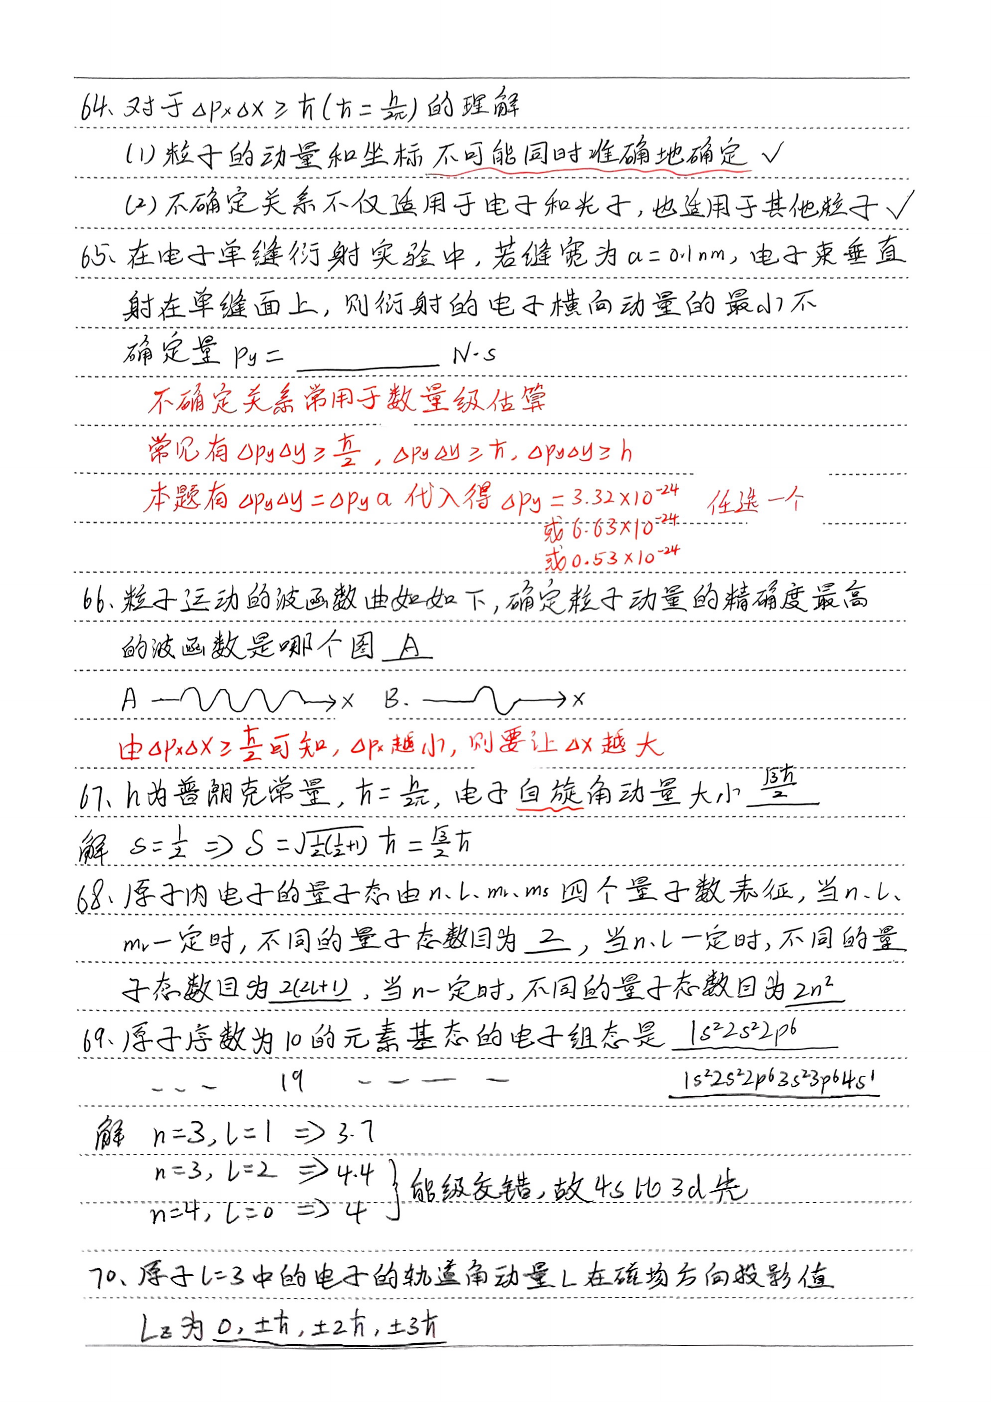 64、对于Δpₓ Δx ≥ ħ (ħ = h/2π) 的理解
(1) 粒子的动量和坐标不可能同时准确地确定 ✓
(2) 不确定关系不仅适用于电子和光子,也适用于其他粒子 ✓
65、在电子单缝衍射实验中,若缝宽为a=0.1nm,电子束垂直
射在单缝面上,则衍射的电子横向动量的最小不
确定量 py = ________ N·s
不确定关系常用于数量级估算
常见有 ΔpyΔy ≥ ħ/2 , ΔpyΔy ≥ ħ, ΔpyΔy ≥ h
本题有 ΔpyΔy = Δpy a 代入得 Δpy = 3.32×10⁻²⁴ 任选一个
或 6.63×10⁻²⁴
或 0.53×10⁻²⁴
66、粒子运动的波函数曲如如下,确定粒子动量的精确度最高
的波函数是哪个图 A
A x B. x
由 ΔpₓΔx ≥ ħ/2 可知, Δpₓ越小, 则要让 Δx 越大
67、h为普朗克常量, ħ = h/2π, 电子自旋角动量大小 √3ħ/2
解 s=1/2 => S = √(1/2(1/2+1)) ħ = √3/2 ħ
68、原子内电子的量子态由n、l、ml、ms四个量子数表征,当n、l、
ml一定时,不同的量子态数目为 2 ,当n、l一定时,不同的量
子态数目为 2(2l+1) ,当n一定时,不同的量子态数目为 2n²
69、原子序数为10的元素基态的电子组态是 1s²2s²2p⁶
--- 19 ---- 1s²2s²2p⁶3s²3p⁶4s¹
解 n=3, l=1 => 3.7
n=3, l=2 => 4.4
n=4, l=0 => 4 } 能级交错,故4s比3d先
70、原子l=3中的电子的轨道角动量L在磁场方向投影值
Lz为 0, ±ħ, ±2ħ, ±3ħ